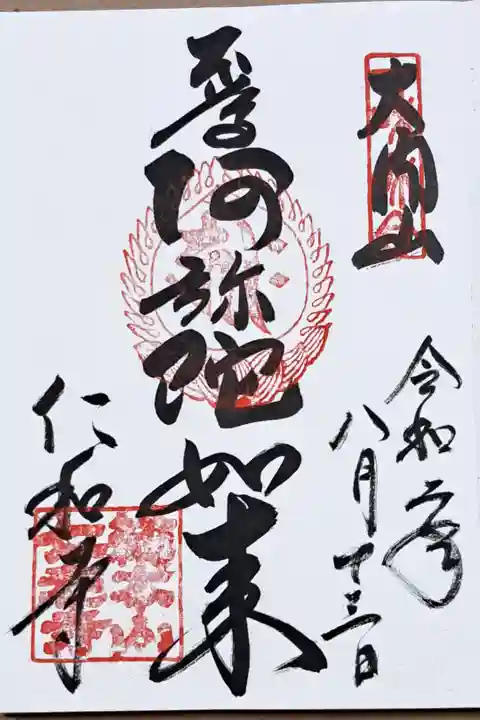 大内山
阿弥陀如来
令和二年
八月十三日
仁和寺